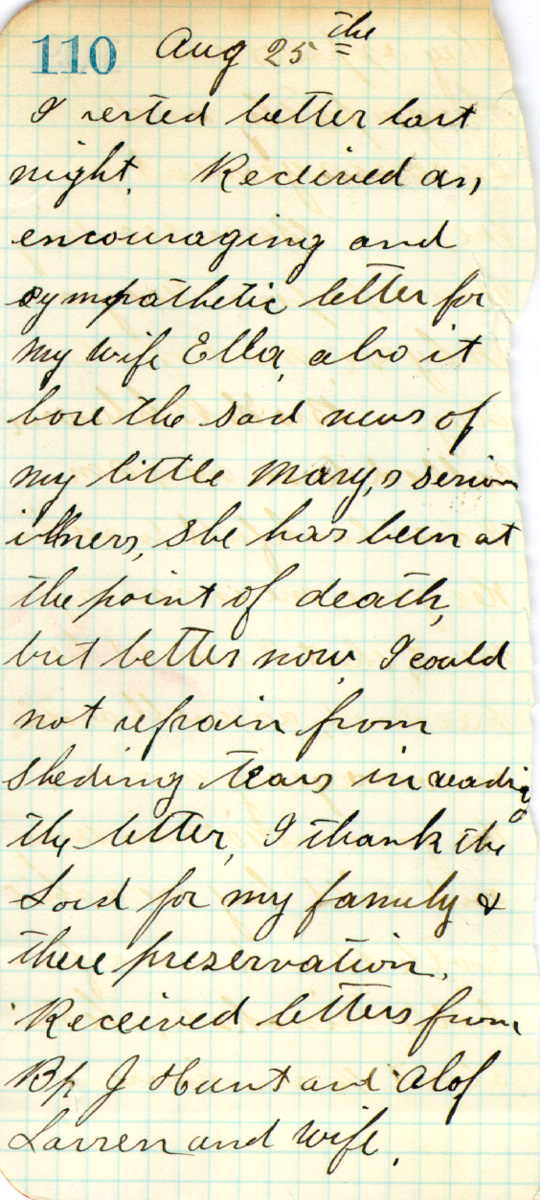 110 Aug 25th
I rested better last
night. Recieved an
encouraging and
sympathetic letter for
my wife Ella, also it
bore the sad news of
my little Mary,s serious
illness, she has been at
the point of death,
but better now, I could
not refrain from
sheding tears in reading
the letter, I thank the
Lord for my family &
there preservation.
Received letters from
Bp J Hunt and Alof
Larren and wife.